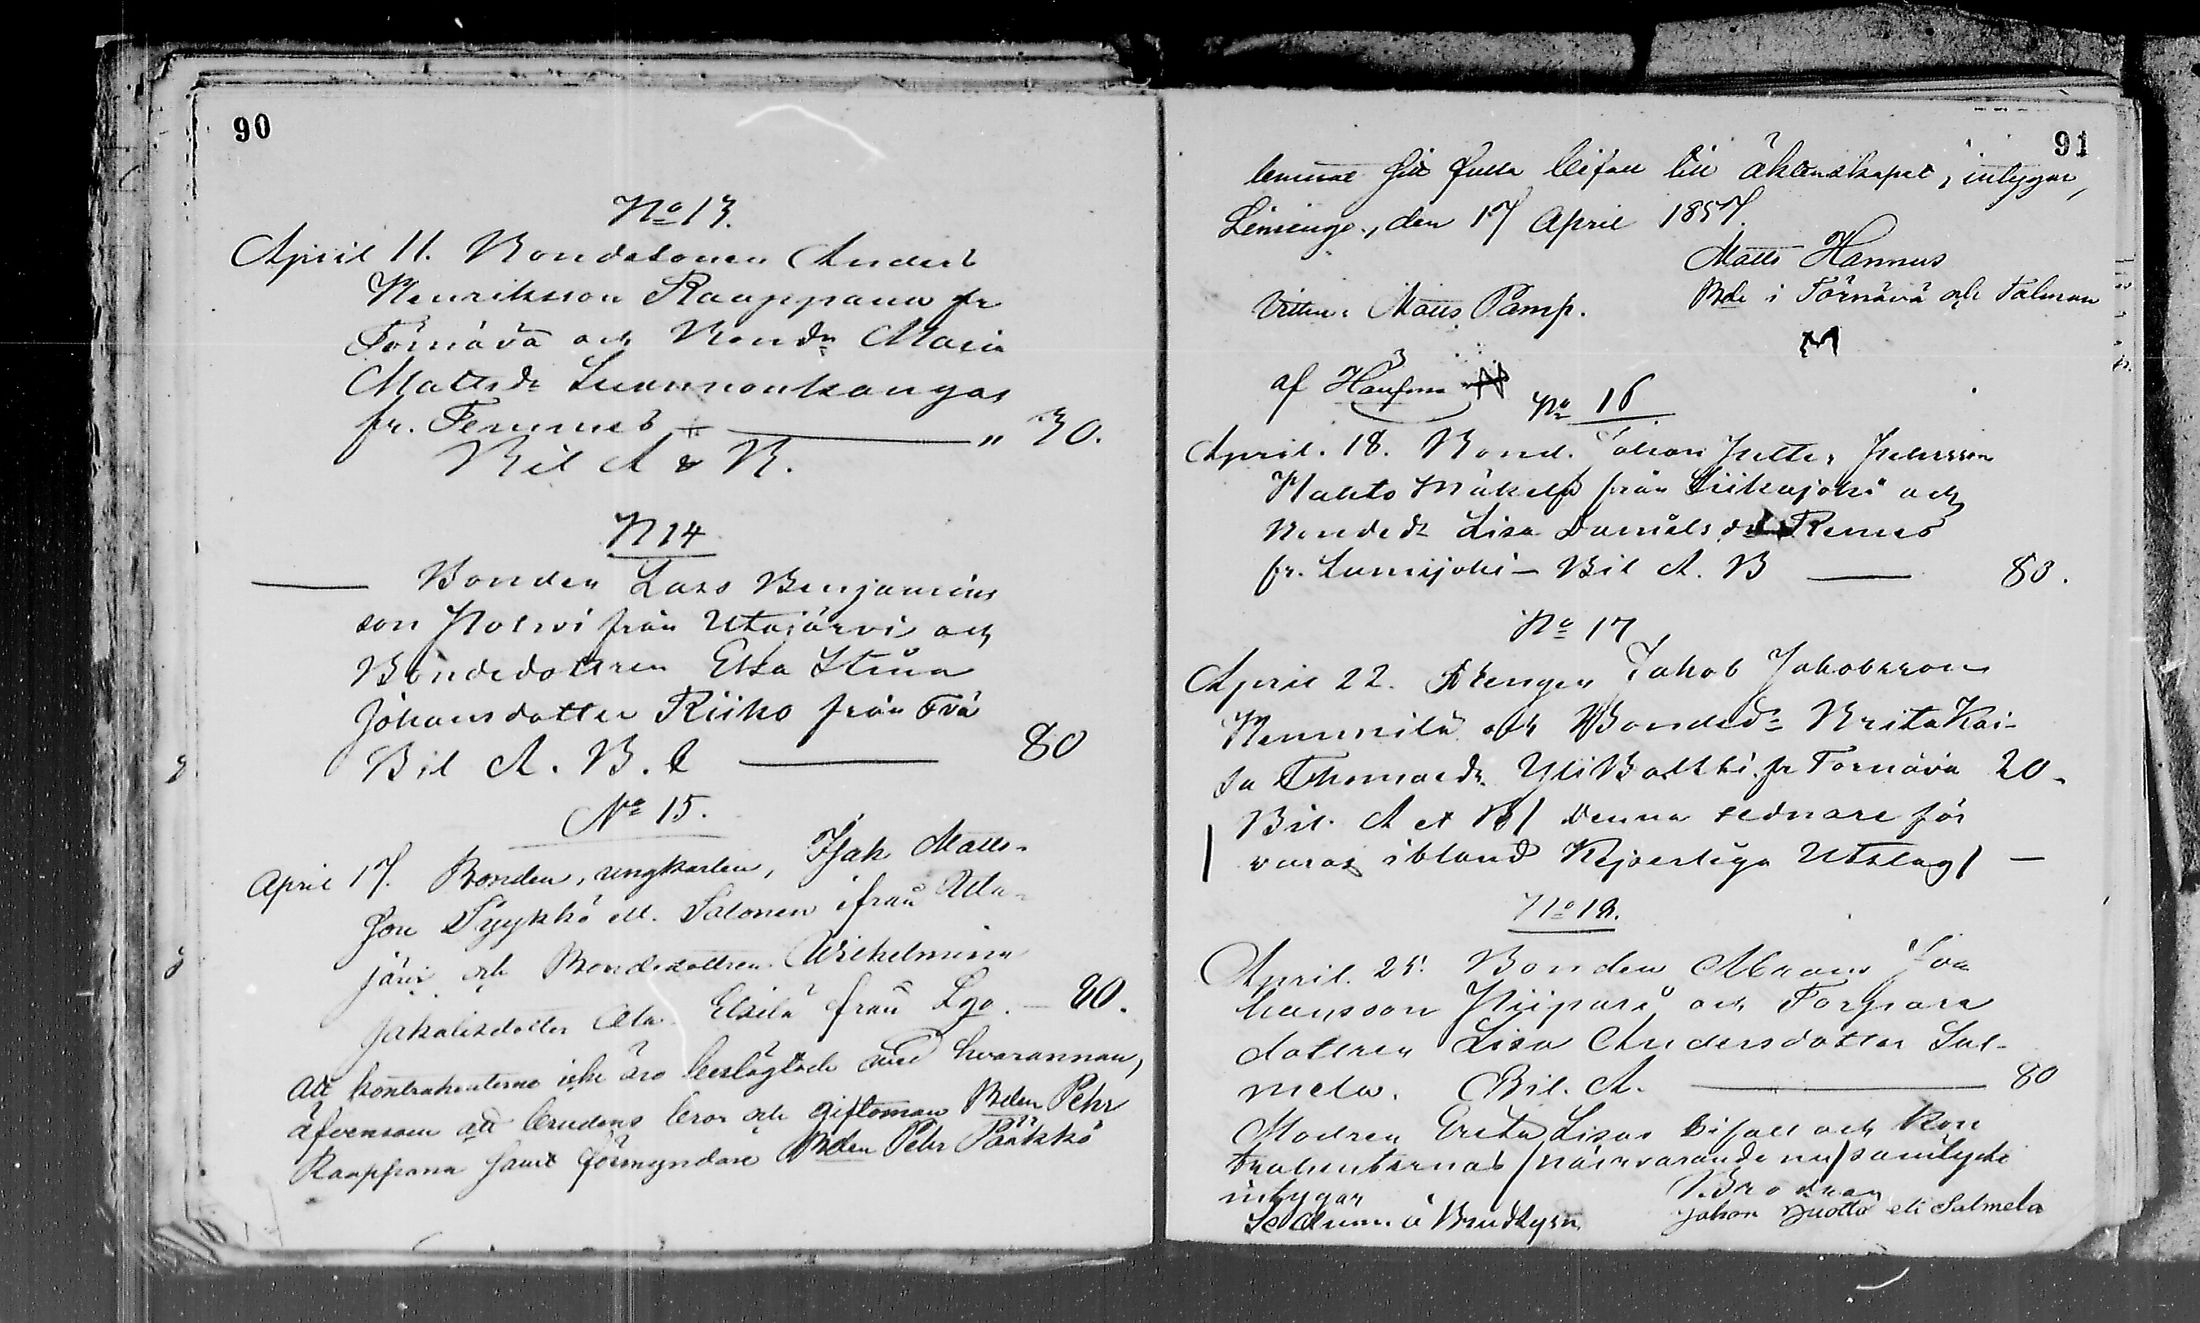 90
No 13.
April 11. Bondesonen Anders
Henriksson Raappana fr
Törnävä och Bondr Maria
Mattsdr Luonnonkangas
fr. Temmes " 30.
Bil A & B.
N 14
Bonden Lars Benjamins
son Holvi från Utajärvi och
Bondedottren Elsa Stina
Johansdotter Riiko från
Bil A. B. C 80
No 15.
April 17. Bonden, ungkarlen, Isak Matts-
son Pyykkö ell. Salonen ifrån Uta-
järvi och Bondedottren Wilhelmina
Jakobsdotter Ala Elsilä från Lgo. — 80.
Att kontrahenterne icke äro beslägtade med hvarannan,
äfvensom att brudens bror och giftoman Bden Pehr
Raappana samt förmyndare Bden Pehr Päätkkö
91
lemnat sitt fulla bifall till äktenskapet, intygar,
Limingo, den 17 April 1857.
Matts Hannus
Vittne: Matts Pamp. Bde i Törnävä och Talman
af
No 16
April. 18. Bond. Johan Petter Petersson
Mäkelä från Siikajoki och
Bondedr Lisa Danielsdr Remes
fr. Lumijoki — Bil A. B — 80.
No 17
April 22. Drengen Jakob Jakobsson
Hemmilä och Bondedr Brita Kai-
sa Thomasdr YliBoltti fr Tornävä 20.
Bil. A et B / denna sednare för
varas ibland Kejserliga Utslag / —
No 18.
April. 25. Bonden Maans Jo
hansson Piipari och Torpare
dottren Lisa Andersdotter Sal-
mela. Bil. A. 80
Modren Greta Lisas bifall och Kon
trahenternas (närvarande nu) samtycke
intygar Brodren
Johan eli Salmela